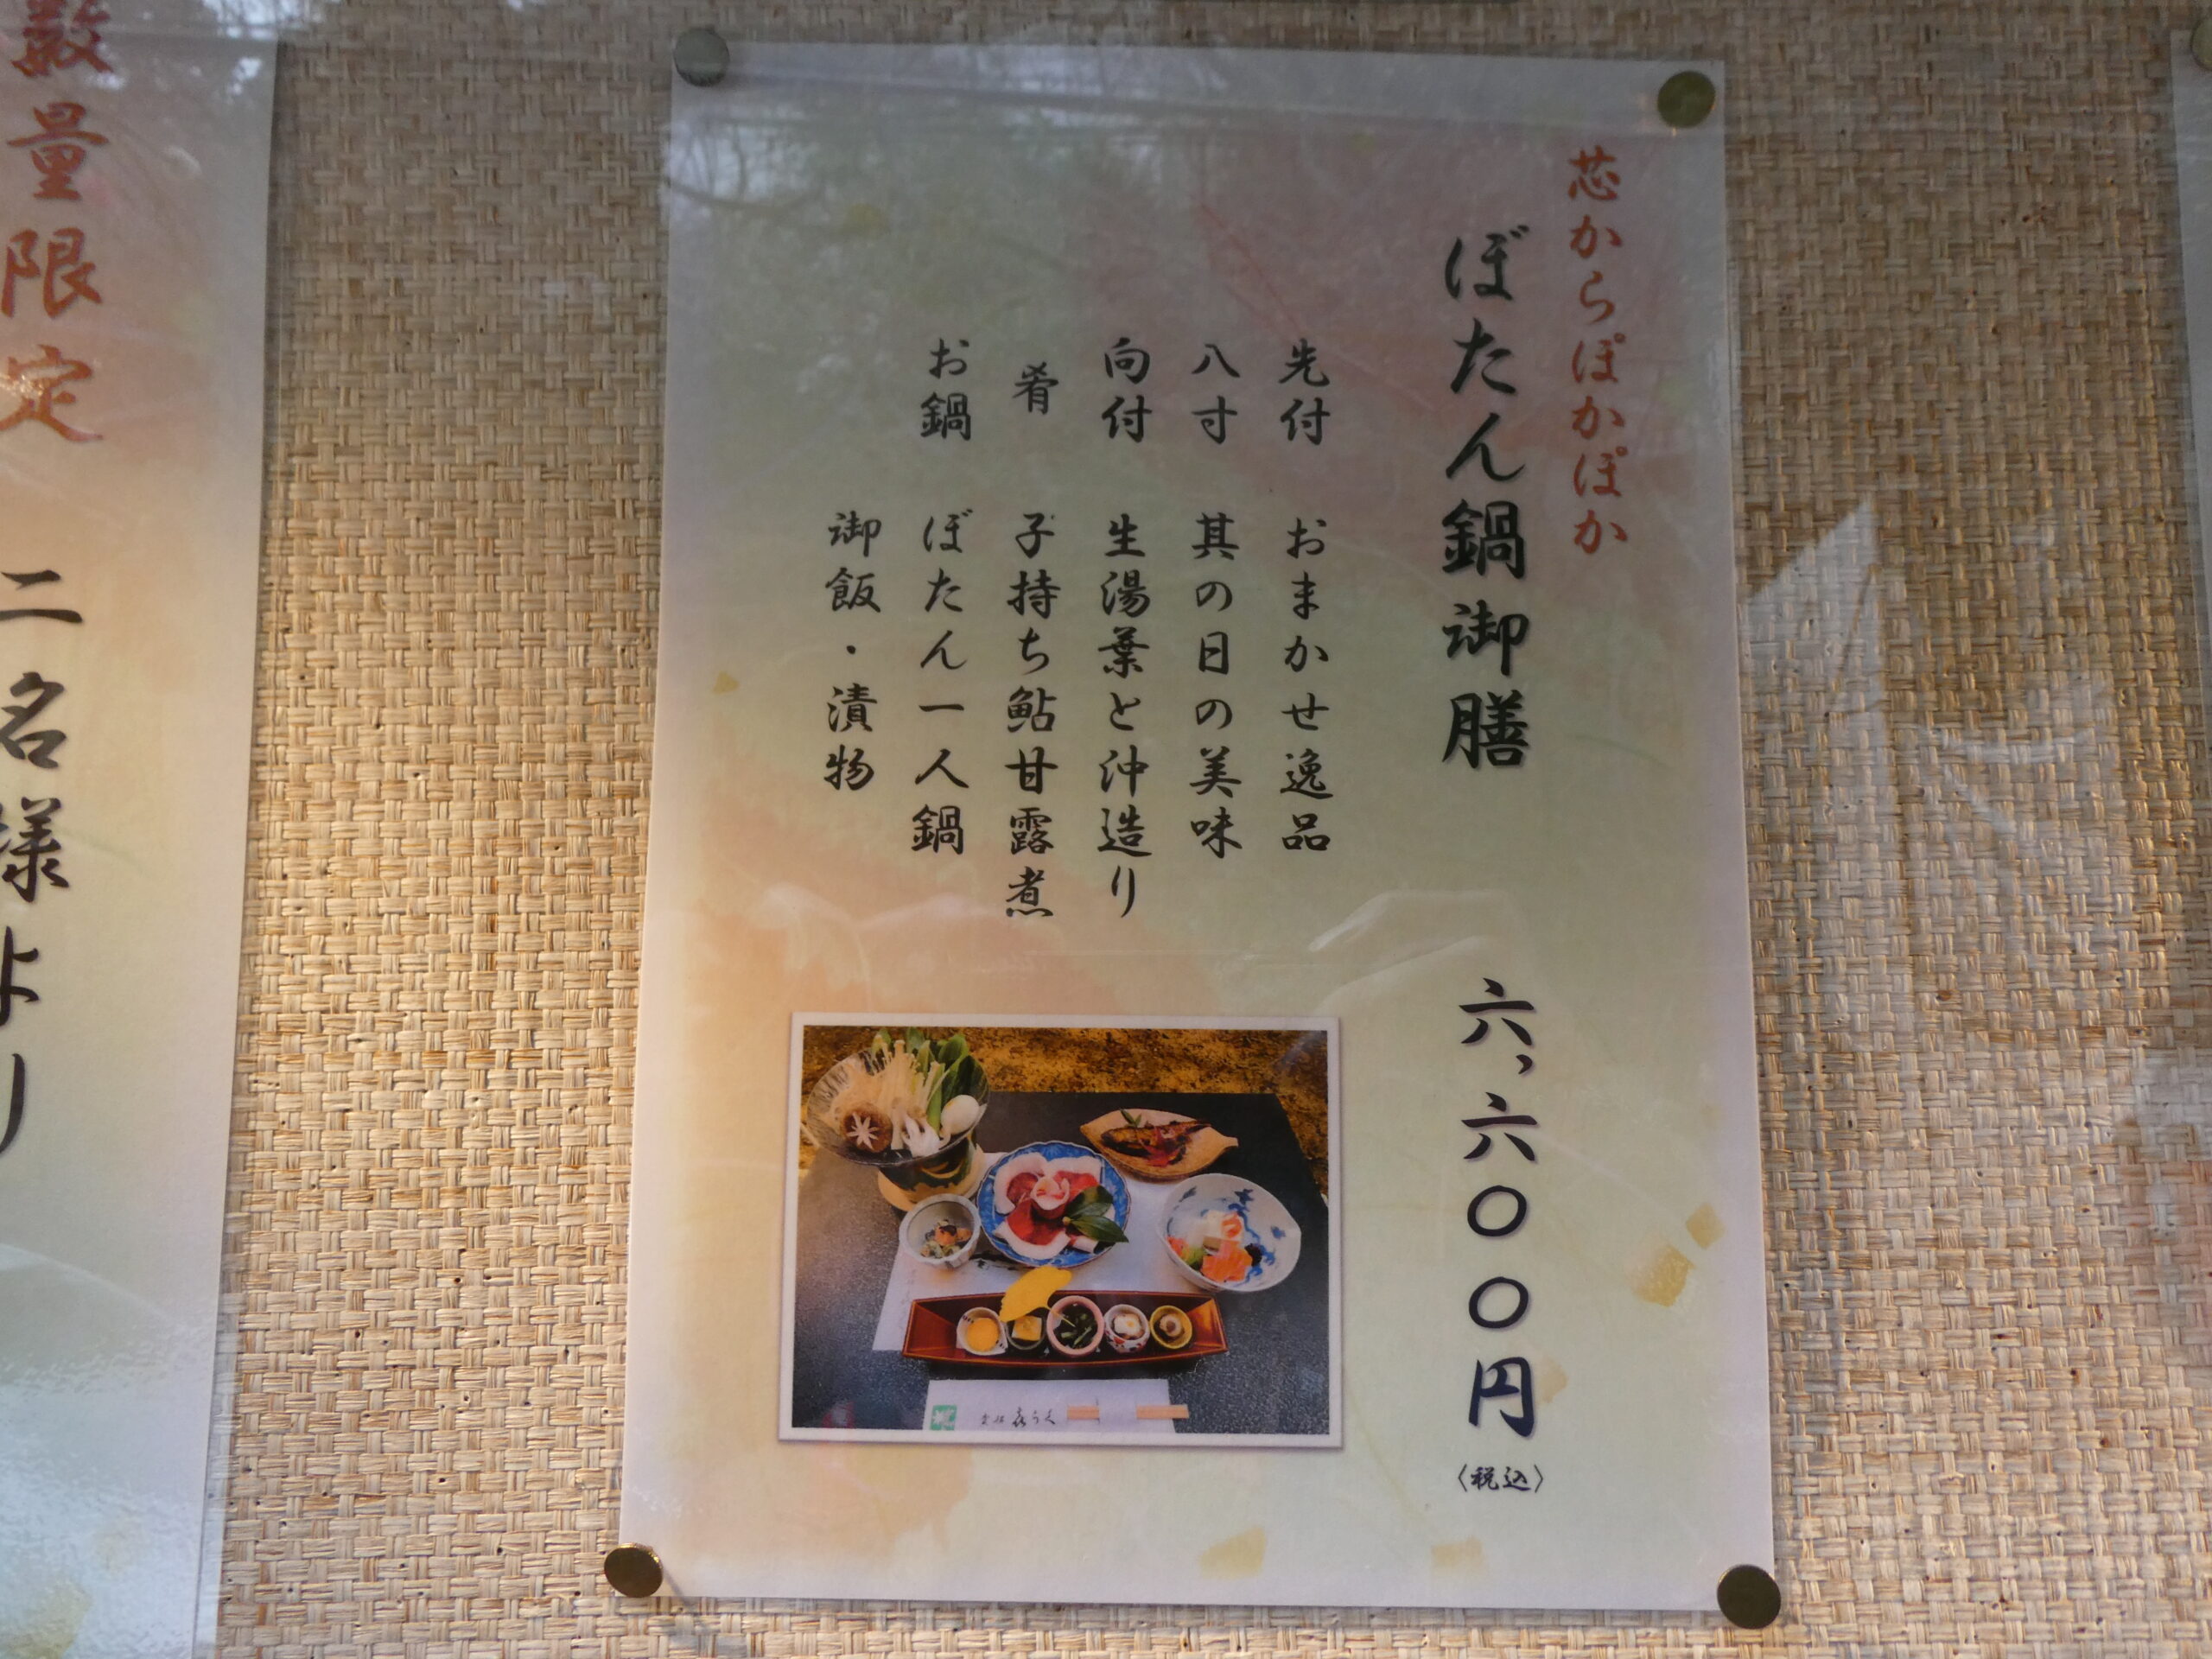 芯からぽかぽか
ぼたん鍋御膳 六,六〇〇円 〈税込〉
先付 おまかせ逸品
八寸 其の日の美味
向付 生湯葉と沖造り
肴 子持ち鮎甘露煮
お鍋 ぼたん一人鍋
御飯・漬物
数量限定
二名様より